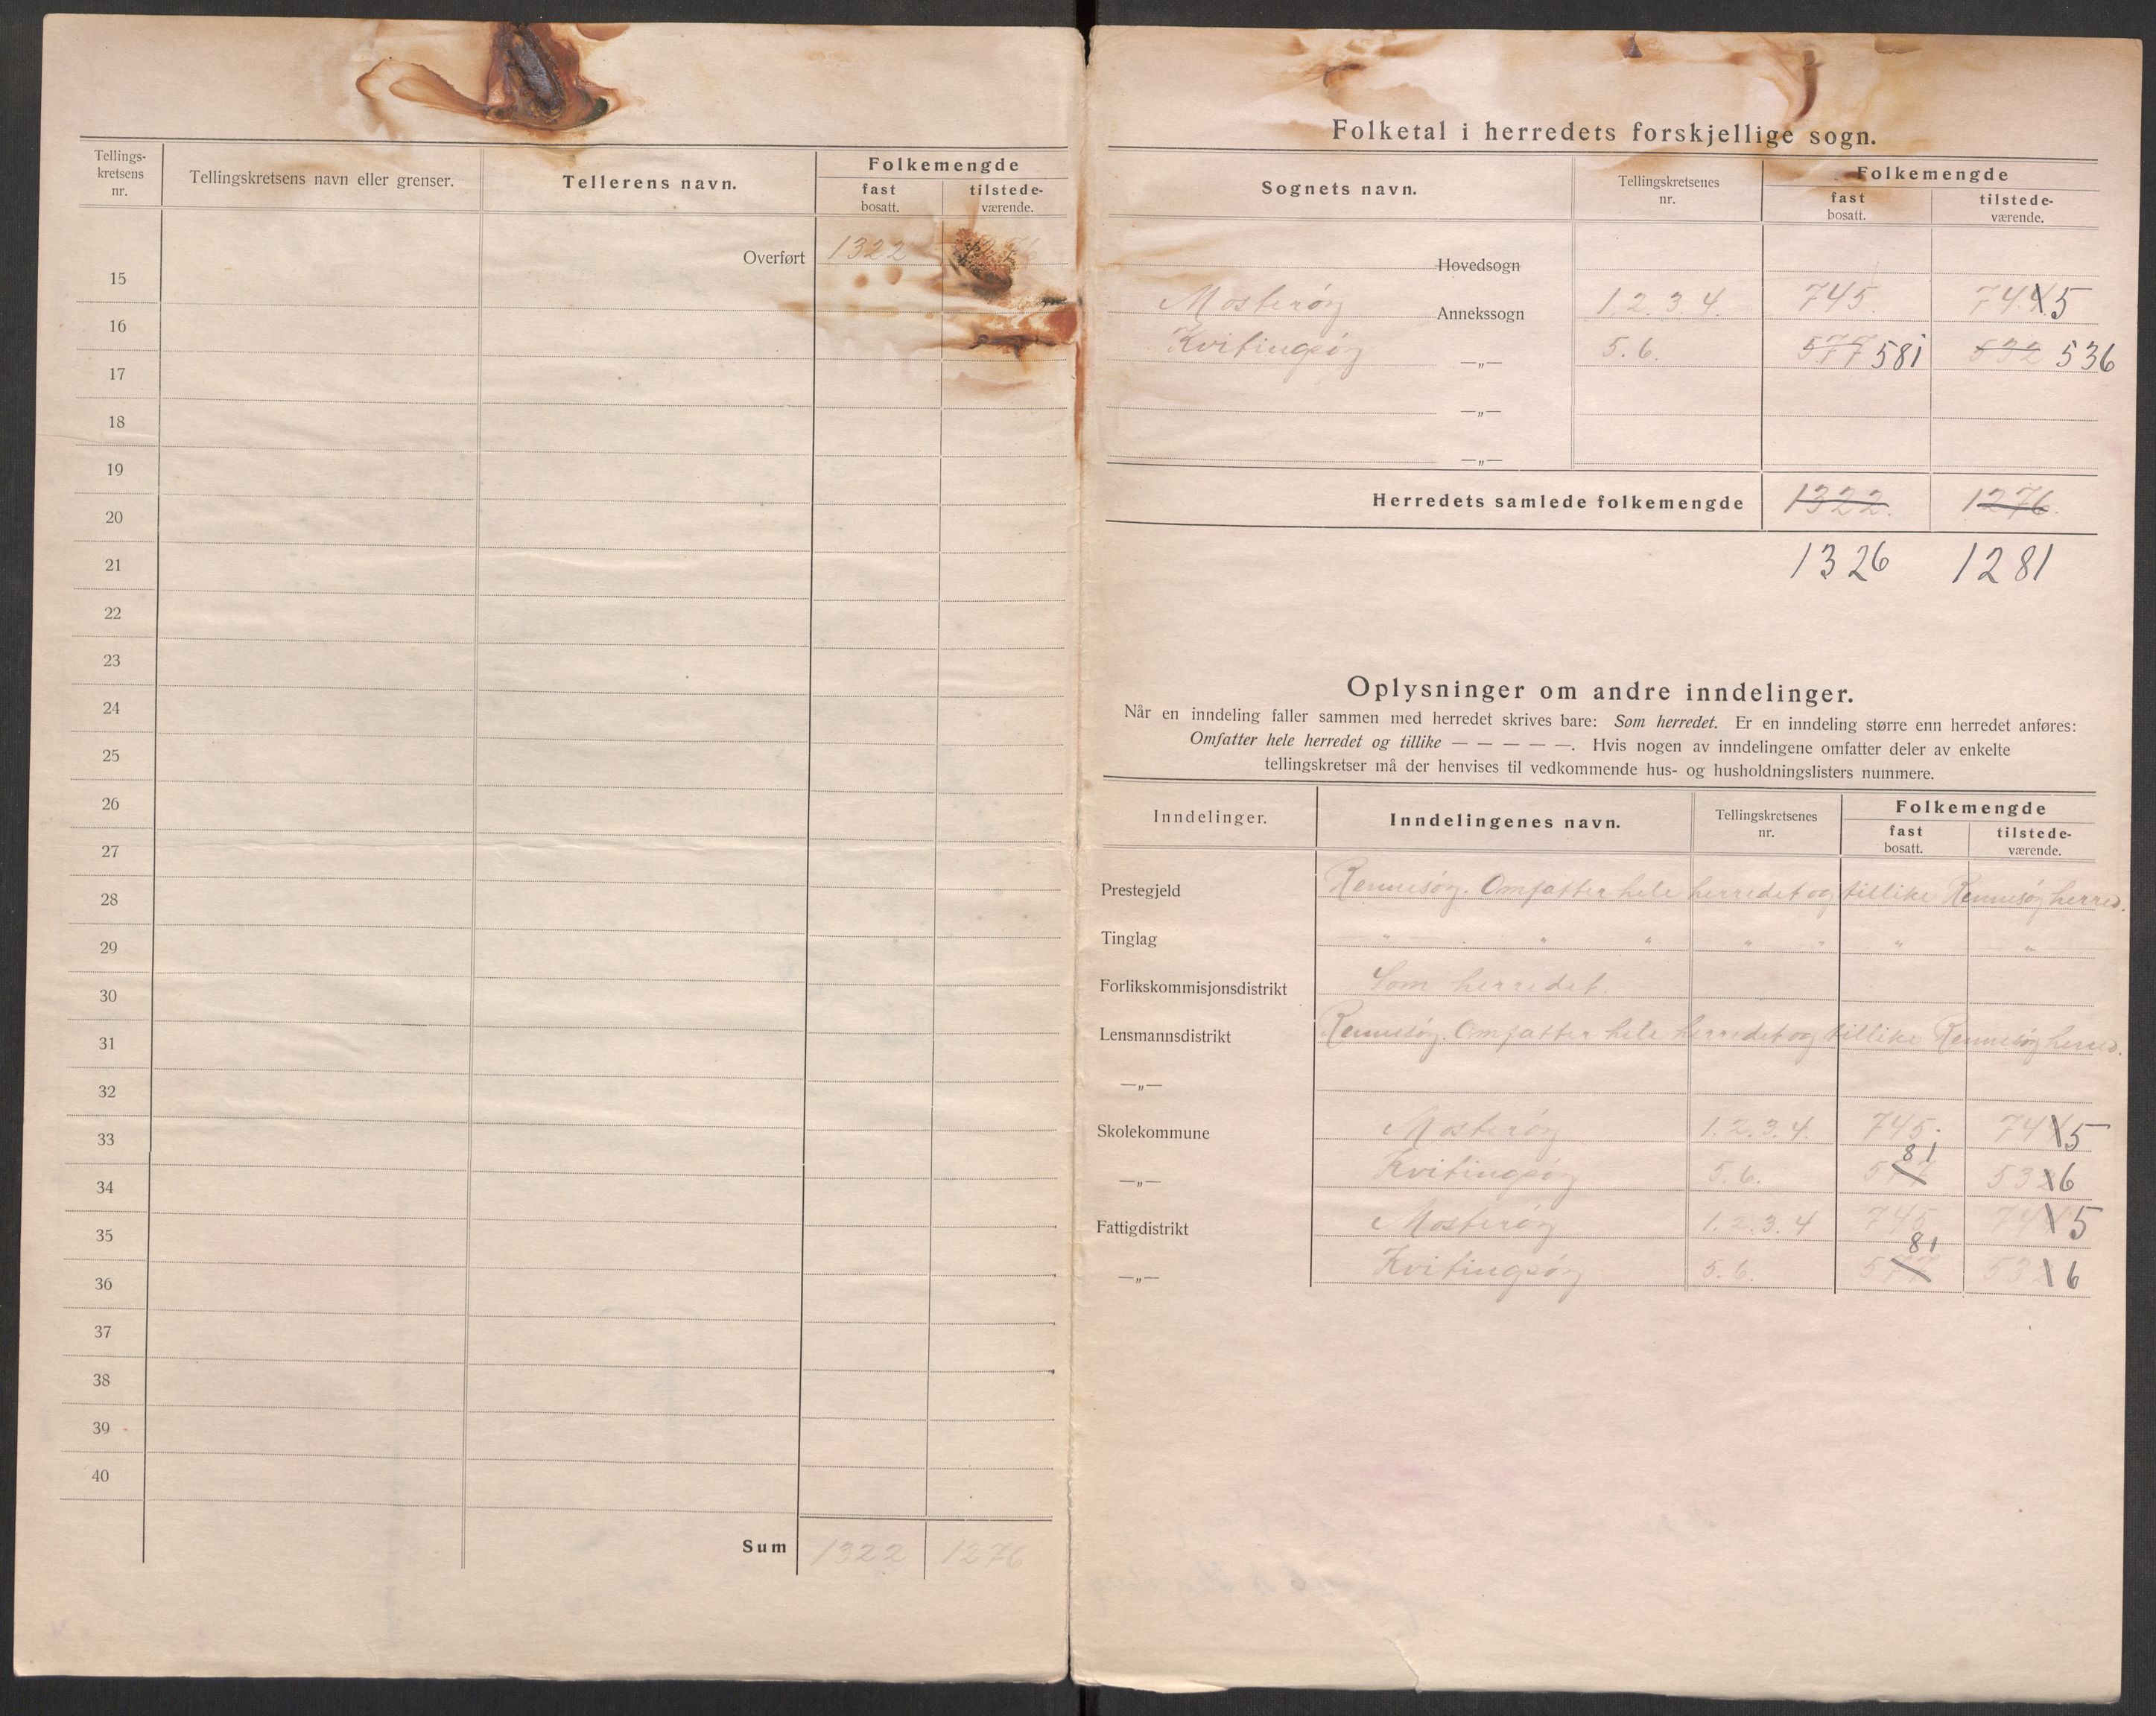 Tellings-
kretsens
nr.
Tellingskretsens navn eller grenser.
Tellerens navn.
Folkemengde
fast
bosatt.
tilstede-
værende.
Overført 1322 1276
15
16
17
18
19
20
21
22
23
24
25
26
27
28
29
30
31
32
33
34
35
36
37
38
39
40
Sum 1322 1276
Folketal i herredets forskjellige sogn.
Sognets navn.
Tellingskretsenes
nr.
Folkemengde
fast
bosatt.
tilstede-
værende.
Hovedsogn
Mosterøy Annekssogn 1.2.3.4. 745. 744 5
Kvitingsøy —„— 5.6. 577 581 532 536
—„—
—„—
Herredets samlede folkemengde 1322. 1276.
1326 1281
Oplysninger om andre inndelinger.
Når en inndeling faller sammen med herredet skrives bare: Som herredet. Er en inndeling større enn herredet anføres:
Omfatter hele herredet og tillike — — — — —. Hvis nogen av inndelingene omfatter deler av enkelte
tellingskretser må der henvises til vedkommende hus- og husholdningslisters nummere.
Inndelinger.
Inndelingenes navn.
Tellingskretsenes
nr.
Folkemengde
fast
bosatt.
tilstede-
værende.
Prestegjeld Rennesøy. Omfatter hele herredet og tillike Rennesøy herred.
Tinglag " " " " " " "
Forlikskommisjonsdistrikt Som herredet.
Lensmannsdistrikt Rennesøy. Omfatter hele herredet og tillike Rennesøy herred.
—„—
Skolekommune Mosterøy 1.2.3.4. 745. 744 5
81
—„— Kvitingsøy 5.6. 577 532 6
Fattigdistrikt Mosterøy 1.2.3.4 745 744 5
81
—„— Kvitingsøy 5.6. 577 532 6